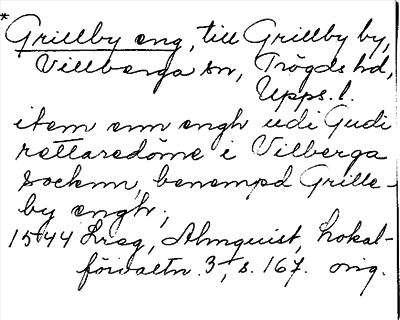 *Grillby eng, till Grillby by,
Villberga sn, Trögds hd,
Upps. l.
item enn engh udi Gudi
rettaredöme i Vilberga
socknn, benempd Grille-
by engh;
1544 Lreg, Almquist, Lokal-
förvaltn. 3, s. 167. orig.